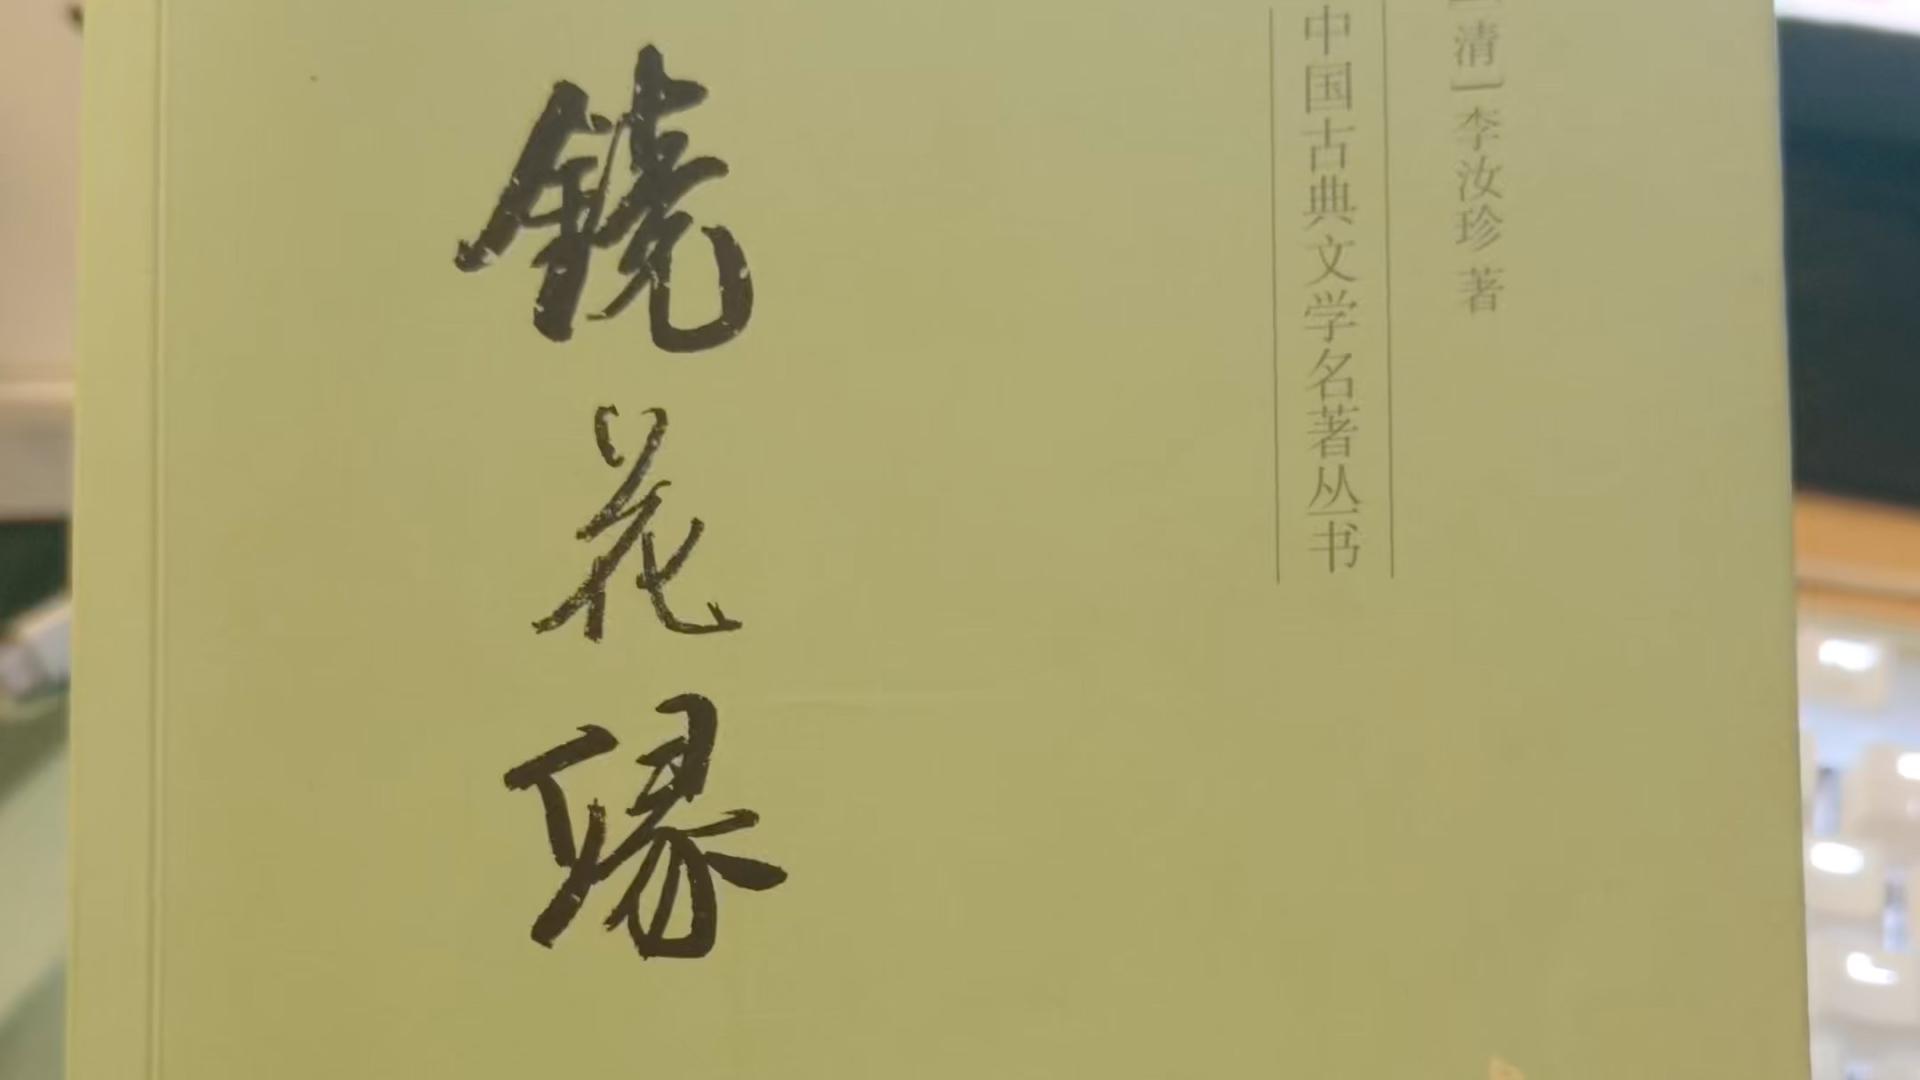 [清]李汝珍 著
中国古典文学名著丛书
鏡花缘